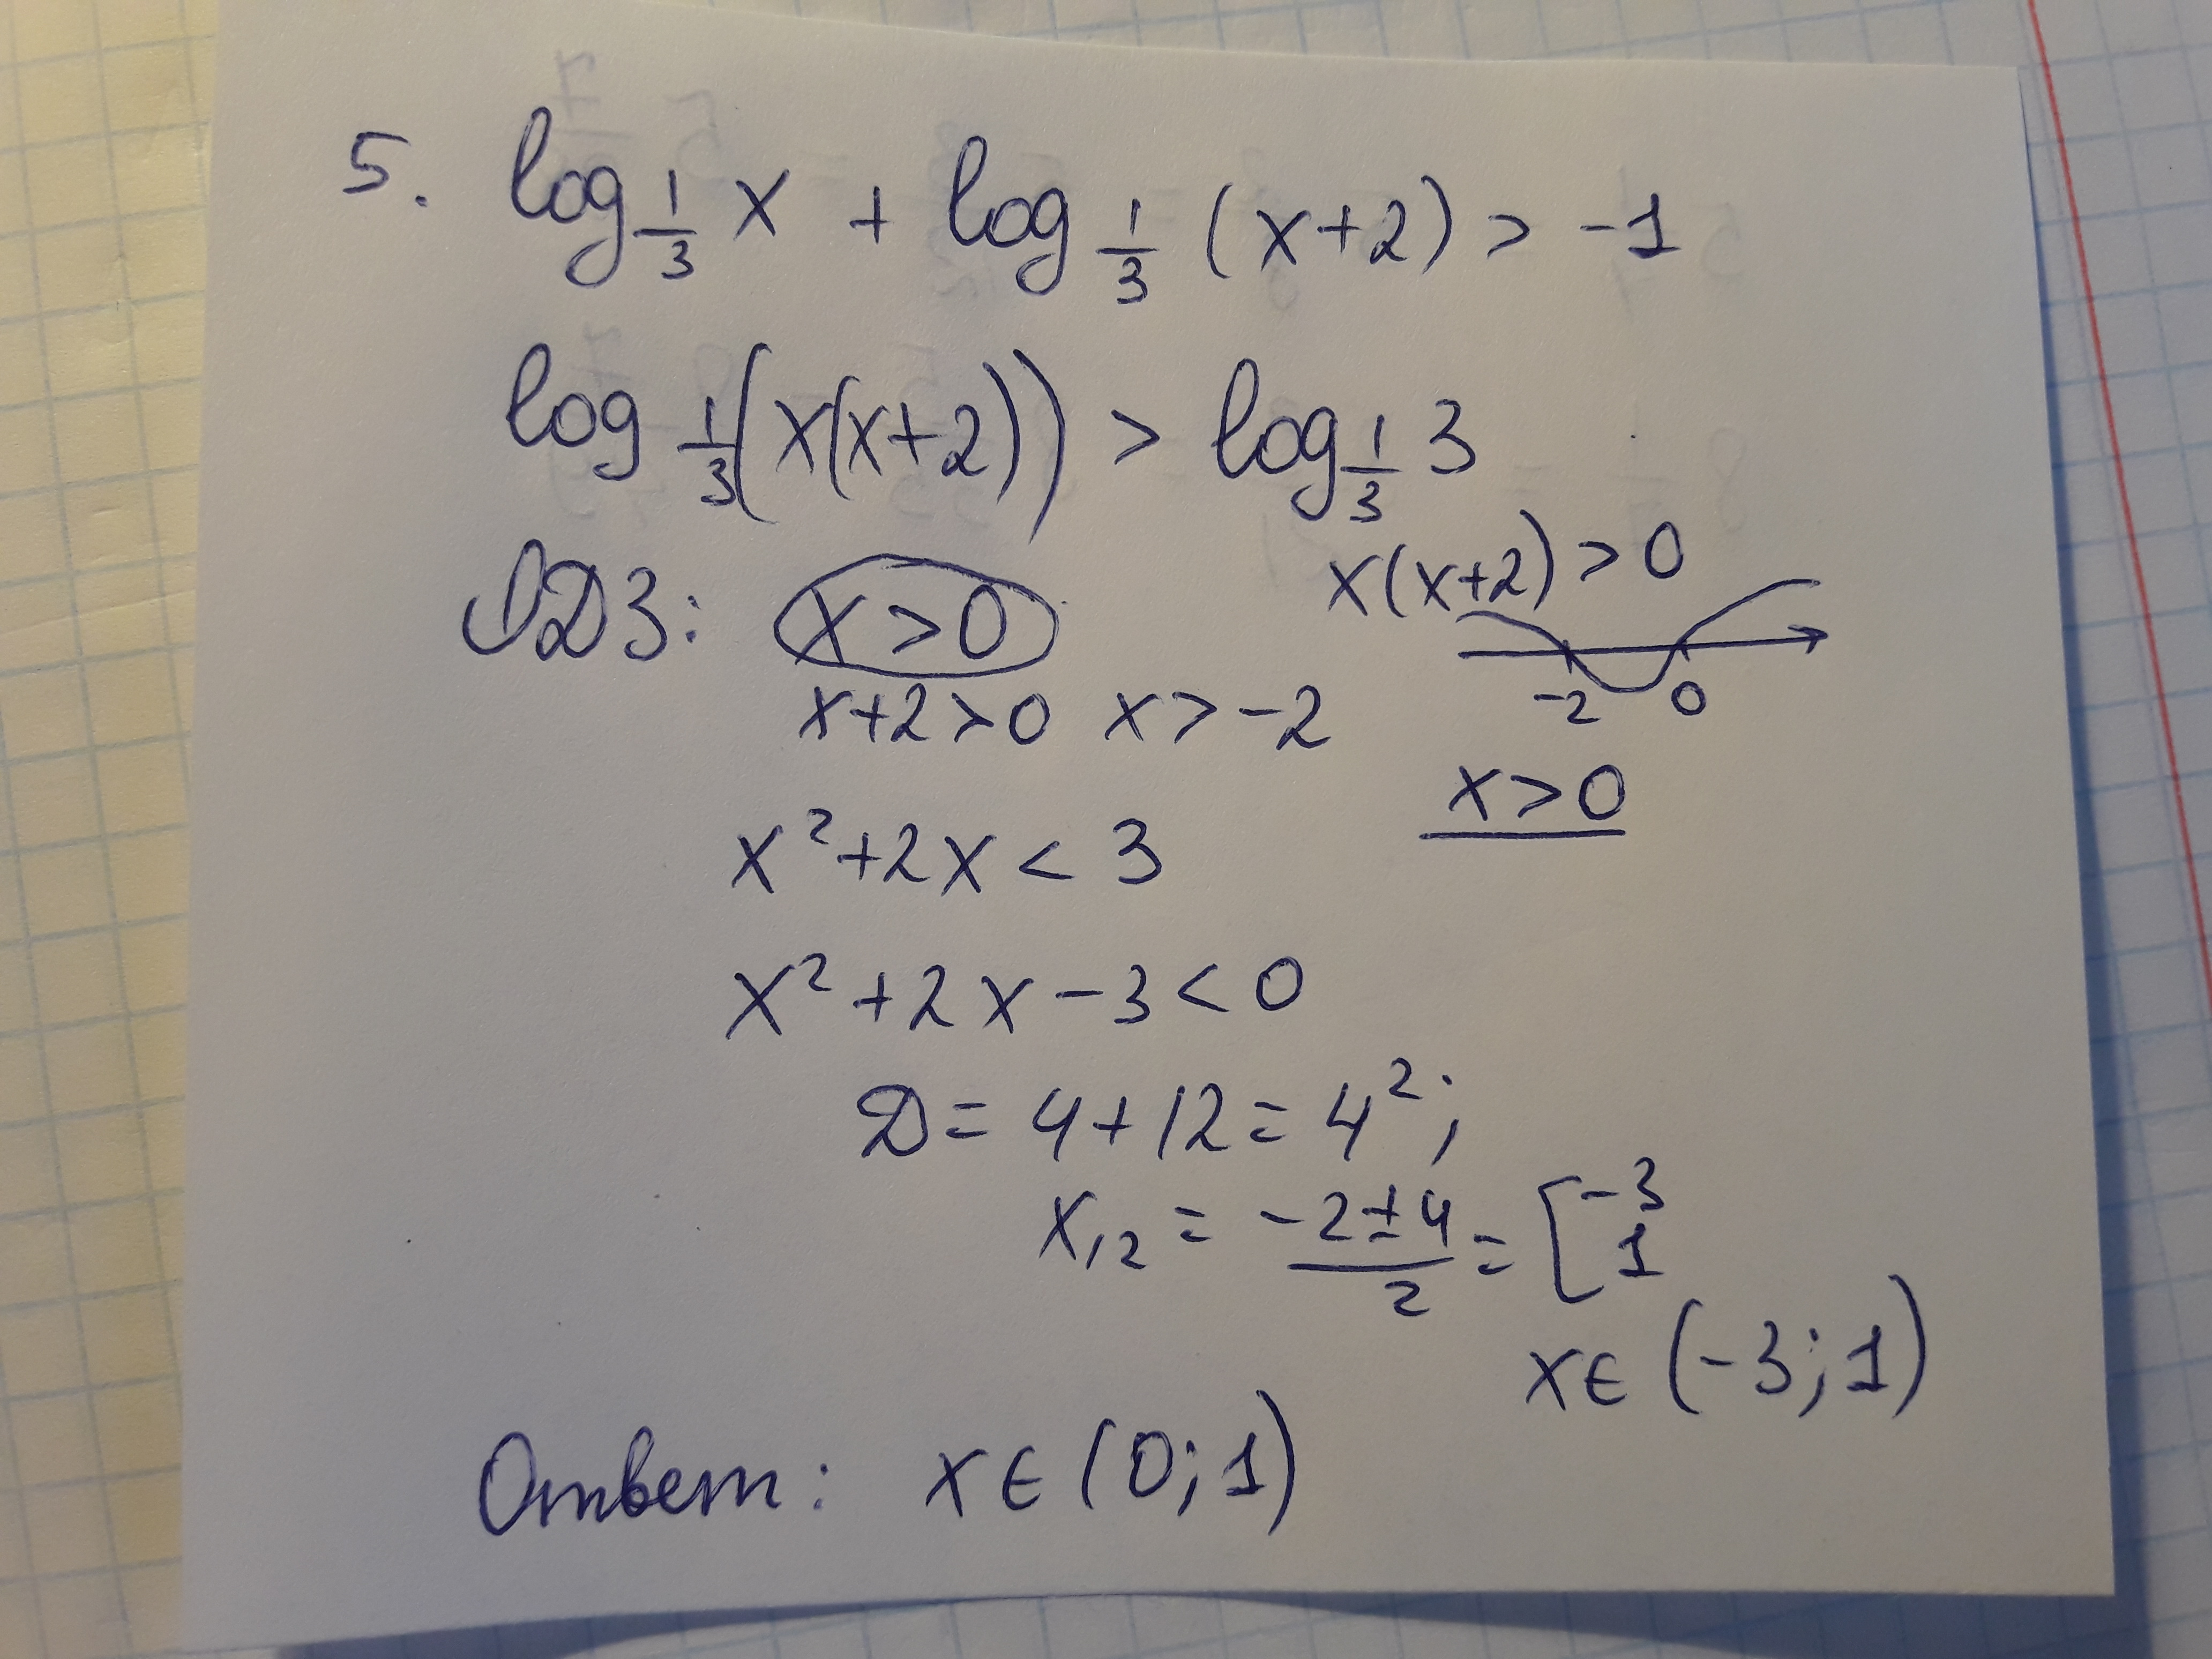 5. log 1/3 x + log 1/3 (x+2) > -1
log 1/3 (x(x+2)) > log 1/3 3
ОДЗ: x>0
x+2>0 x>-2
x(x+2)>0
-2 0
x>0
x²+2x<3
x²+2x-3<0
D=4+12=4²;
x₁₂ = (-2±4)/2 = [-3
1
x∈(-3;1)
Ответ: x∈(0;1)